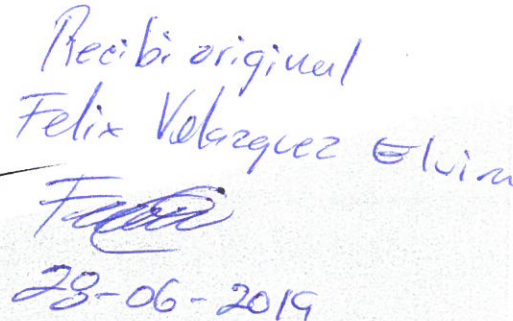 Recibi original
Felix Velazquez Elvira
28-06-2019